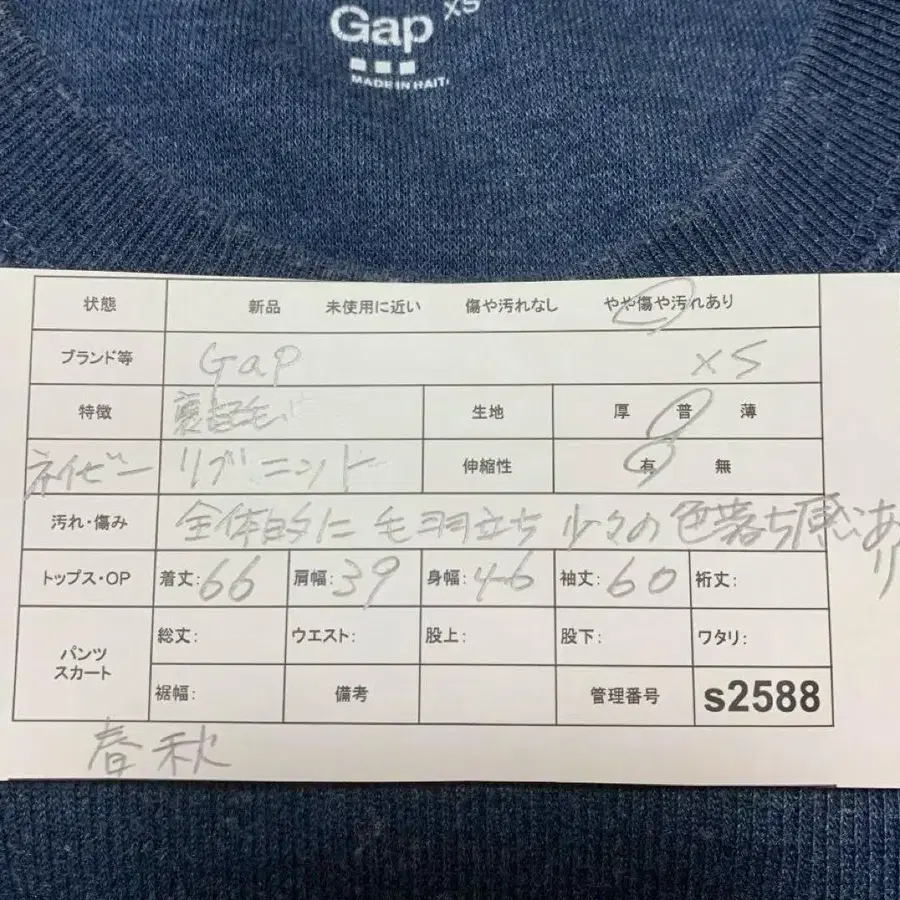 Gap XS
MADE IN HAITI
状態 新品 未使用に近い 傷や汚れなし やや傷や汚れあり
ブランド等 Gap XS
特徴 裏起毛 生地 厚 普 薄
ネイビー リブ 伸縮性 有 無
汚れ・傷み 全体的に毛羽立ち 少々の色落ち感あり
トップス・OP 着丈:66 肩幅:39 身幅:46 袖丈:60 裄丈:
パンツ スカート 総丈: ウエスト: 股上: 股下: ワタリ:
裾幅: 備考 管理番号 s2588
春秋